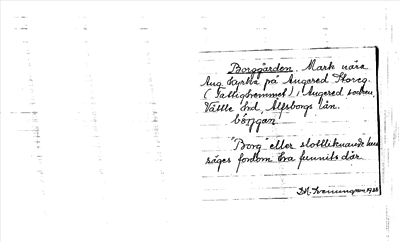 Borggården. Mark nära
Ang. kyrka på Angered Storeg.
(Fattighemmet) i Angered socken,
Vättle hrd, Älfsborgs län.
bórjgan
"Borg" eller slottliknande hus
säges fordom ha funnits där.
1928